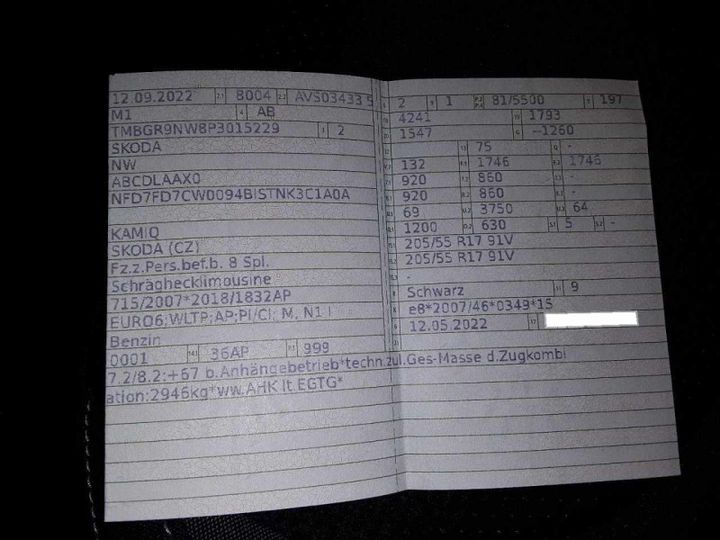 12.09.2022 8004 AVS03433 9
M1 AB
TMBGR9NW8P3015229 2
SKODA
NW
ABCDLAAX0
NFD7FD7CW0094BISTNK3C1A0A
KAMIQ
SKODA (CZ)
Fz.z.Pers.bef.b. 8 Spl.
Schräghecklimousine
715/2007*2018/1832AP
EURO6;WLTP;AP;PI/CI; M, N1 I
Benzin
0001 36AP 999
7.2/8.2:+67 b.Anhängebetrieb*techn.zul.Ges-Masse d.Zugkombi
ation:2946kg*ww.AHK lt.EGTG*
2 1 81/5500 197
4241 1793
1547 --1260
75 -
132 1746 1746
920 860 -
920 860 -
69 3750 64
1200 630 5 -
205/55 R17 91V
205/55 R17 91V
-
Schwarz 9
e8*2007/46*0349*15
12.05.2022